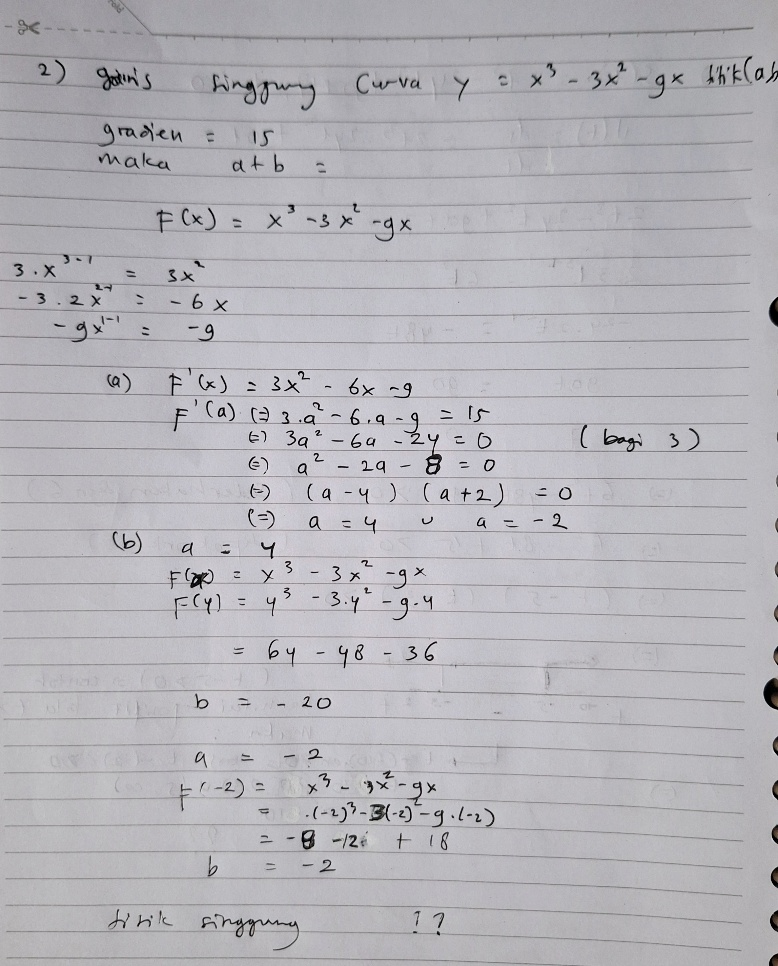 2) garis singgung Curva y = x³ - 3x² - 9x titik (a,b
gradien = 15
maka a + b =
F(x) = x³ - 3x² - 9x
3.x³⁻¹ = 3x²
-3.2x²⁻¹ = -6x
-9x¹⁻¹ = -9
(a) F'(x) = 3x² - 6x - 9
F'(a) (=) 3.a² - 6.a - 9 = 15
(=) 3a² - 6a - 24 = 0 (bagi 3)
(=) a² - 2a - 8 = 0
(=) (a - 4) (a + 2) = 0
(=) a = 4 ∪ a = -2
(b) a = 4
F(x) = x³ - 3x² - 9x
F(4) = 4³ - 3.4² - 9.4
= 64 - 48 - 36
b = - 20
a = - 2
F(-2) = x³ - 3x² - 9x
= .(-2)³ - 3(-2)² - 9.(-2)
= -8 -12 + 18
b = -2
titik singgung ??